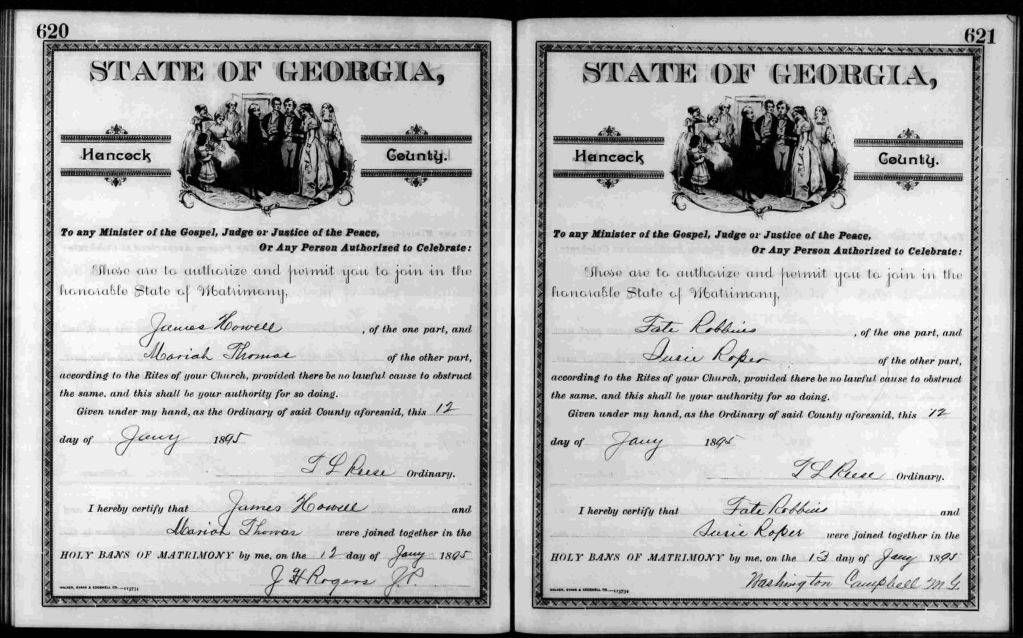 620
STATE OF GEORGIA,
Hancock County.
To any Minister of the Gospel, Judge or Justice of the Peace,
Or Any Person Authorized to Celebrate:
These are to authorize and permit you to join in the
honorable State of Matrimony,
James Howell, of the one part, and
Mariah Thomas of the other part,
according to the Rites of your Church, provided there be no lawful cause to obstruct
the same, and this shall be your authority for so doing.
Given under my hand, as the Ordinary of said County aforesaid, this 12
day of Jany 1895
T L Reese Ordinary.
I hereby certify that James Howell and
Mariah Thomas were joined together in the
HOLY BANS OF MATRIMONY by me, on the 12 day of Jany 1895
J H Rogers J.P.
WALKER, EVANS & COGSWELL CO.—113732
621
STATE OF GEORGIA,
Hancock County.
To any Minister of the Gospel, Judge or Justice of the Peace,
Or Any Person Authorized to Celebrate:
These are to authorize and permit you to join in the
honorable State of Matrimony,
Fate Robbins, of the one part, and
Susie Roper of the other part,
according to the Rites of your Church, provided there be no lawful cause to obstruct
the same, and this shall be your authority for so doing.
Given under my hand, as the Ordinary of said County aforesaid, this 12
day of Jany 1895
T L Reese Ordinary.
I hereby certify that Fate Robbins and
Susie Roper were joined together in the
HOLY BANS OF MATRIMONY by me, on the 13 day of Jany 1895
Washington Campbell M.G.
WALKER, EVANS & COGSWELL CO.—113732